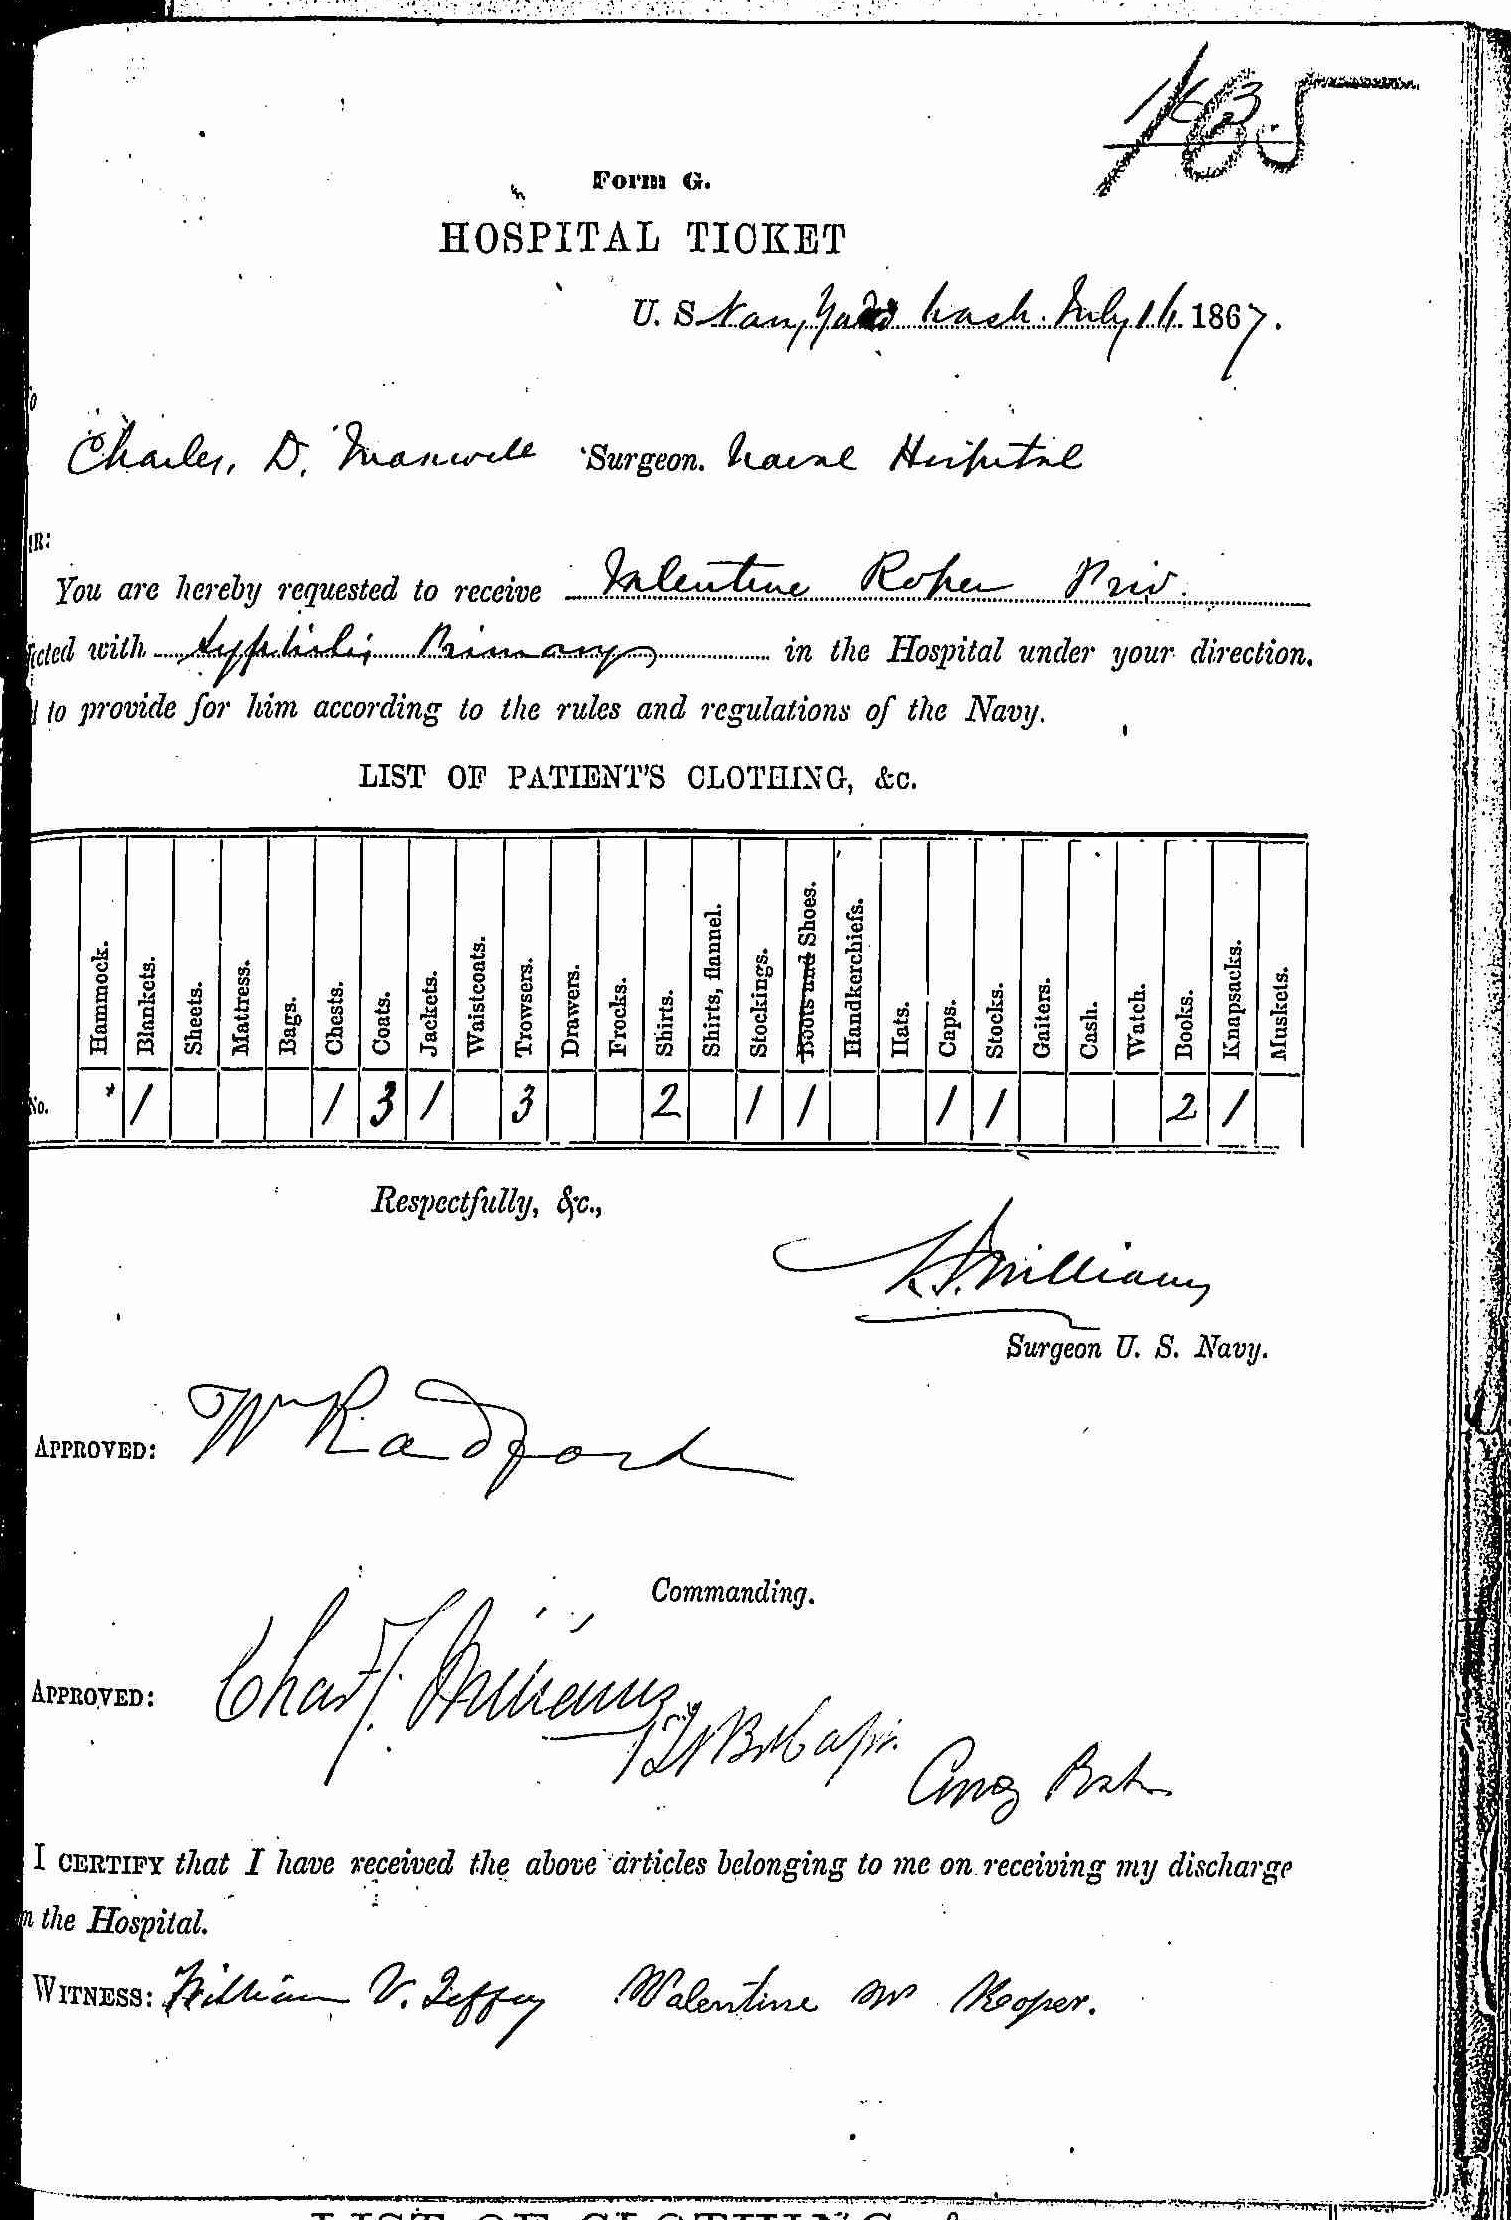 135
Form G.
HOSPITAL TICKET
U. S. Navy Yard Wash. July 1867.
Charles, D. Maxwell Surgeon. Naval Hospital
You are hereby requested to receive Valentine Roper Priv.
with Syphilis Primary in the Hospital under your direction.
to provide for him according to the rules and regulations of the Navy.
LIST OF PATIENT'S CLOTHING, &c.
Hammock. Blankets. Sheets. Mattress. Bags. Chests. Coats. Jackets. Waistcoats. Trowsers. Drawers. Frocks. Shirts. Shirts, flannel. Stockings. Boots and Shoes. Handkerchiefs. Hats. Caps. Stocks. Gaiters. Cash. Watch. Books. Knapsacks. Muskets.
No. 1 1 3 1 3 2 1 1 1 1 2 1
Respectfully, &c.,
Williams
Surgeon U. S. Navy.
APPROVED: Wm Radford
Commanding.
APPROVED: Chas F. Williams
Capt.
I CERTIFY that I have received the above articles belonging to me on receiving my discharge
the Hospital.
WITNESS: William V. Valentine W Roper.
LIST OF CLOTHING, &